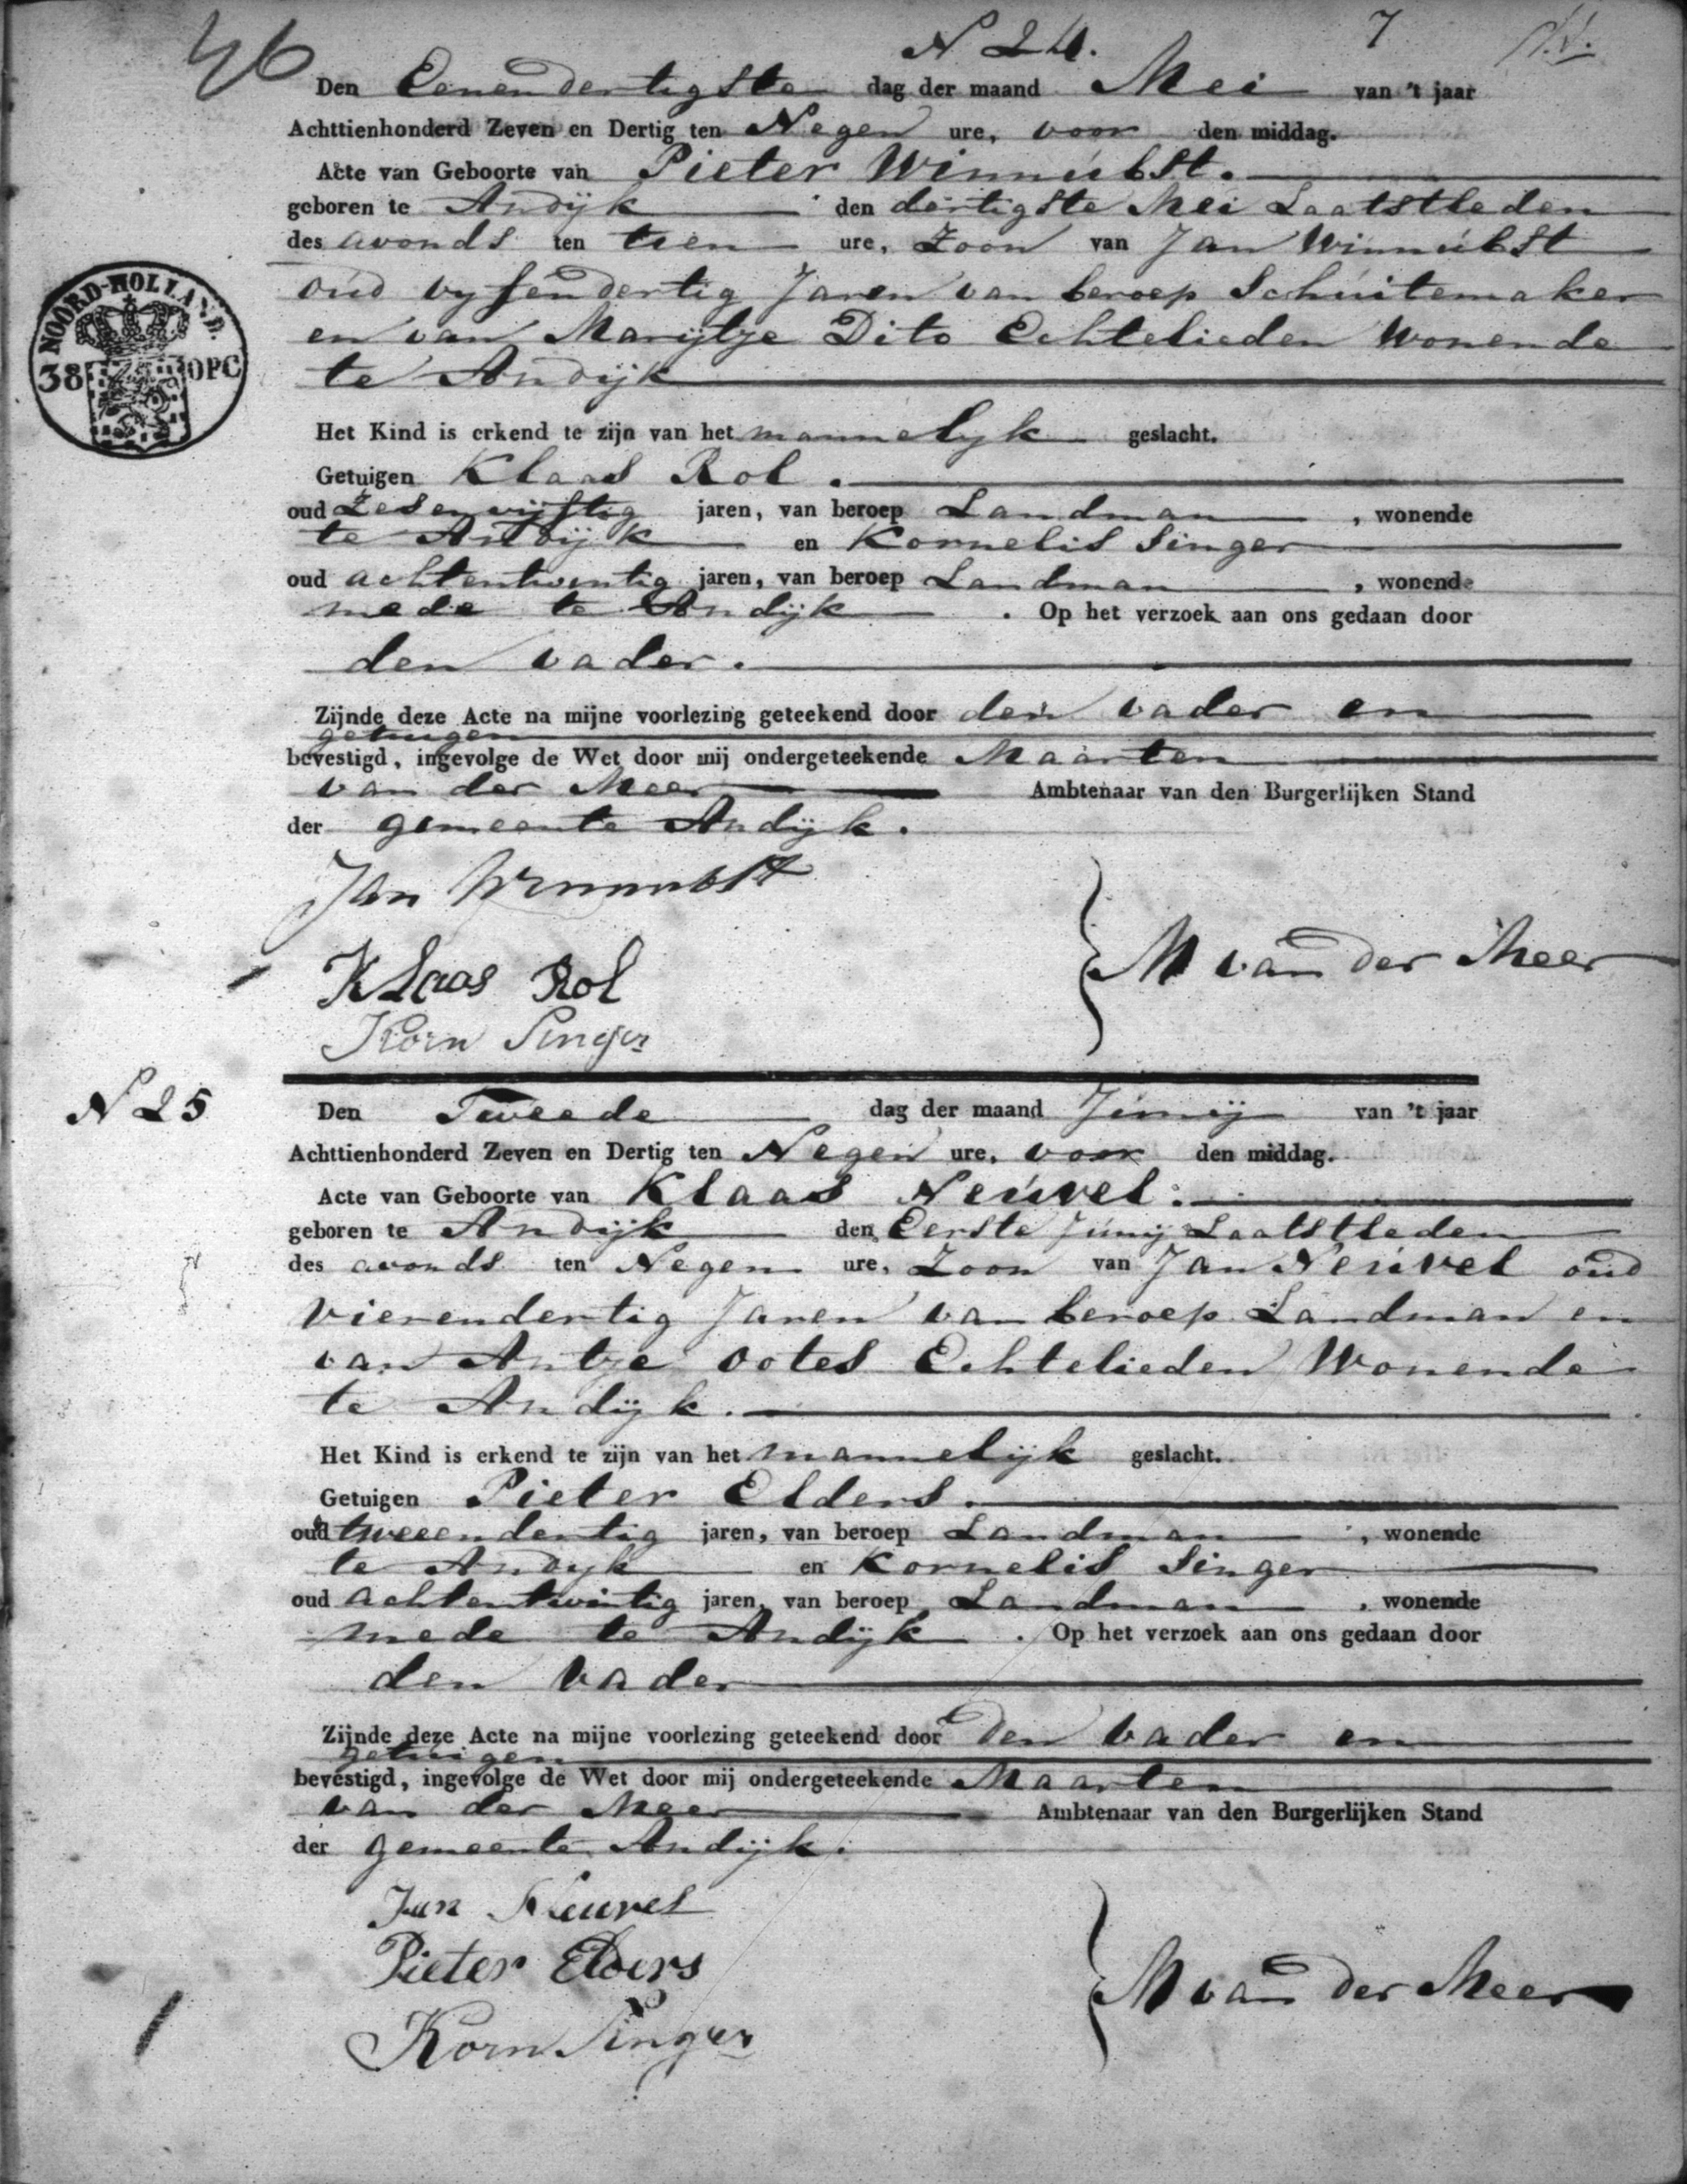 46
N 24.
7
Den Eenendertigste dag der maand Mei van 't jaar
Achttienhonderd Zeven en Dertig ten Negen ure, voor den middag.
Acte van Geboorte van Pieter Winnubst.
geboren te Andijk den dertigste Mei Laatstleden
des avonds ten tien ure, Zoon van Jan Winnubst
oud vyfendertig Jaren van beroep Schuitemaker
en van Marijtje Dito Echtelieden Wonende
te Andijk
NOORD-HOLLAND.
38 OPC
Het Kind is erkend te zijn van het mannelyk geslacht.
Getuigen Klaas Rol.
oud Zesenvijftig jaren, van beroep Landman, wonende
te Andijk en Kornelis Singer
oud achtentwintig jaren, van beroep Landman, wonende
mede te Andijk. Op het verzoek aan ons gedaan door
den vader.
Zijnde deze Acte na mijne voorlezing geteekend door den vader en
getuigen
bevestigd, ingevolge de Wet door mij ondergeteekende Maarten
van der Meer Ambtenaar van den Burgerlijken Stand
der gemeente Andijk.
Jan Winnubst
Klaas Rol
M van der Meer
Korn Singer
N 25
Den Tweede dag der maand Junij van 't jaar
Achttienhonderd Zeven en Dertig ten Negen ure, voor den middag.
Acte van Geboorte van Klaas Neuvel.
geboren te Andijk den Eerste Junij Laatstleden
des avonds ten Negen ure, Zoon van Jan Neuvel oud
vierendertig Jaren van beroep Landman en
van Antje ootes Echtelieden Wonende
te Andijk.
Het Kind is erkend te zijn van het mannelijk geslacht.
Getuigen Pieter Elders.
oud tweeendertig jaren, van beroep Landman, wonende
te Andyk en Kornelis Singer
oud achtentwintig jaren, van beroep Landman, wonende
mede te Andijk. Op het verzoek aan ons gedaan door
den vader
Zijnde deze Acte na mijne voorlezing geteekend door den vader en
getuigen
bevestigd, ingevolge de Wet door mij ondergeteekende Maarten
van der Meer Ambtenaar van den Burgerlijken Stand
der gemeente Andijk.
Jan Neuvel
Pieter Elders
M van der Meer
Korn Singer